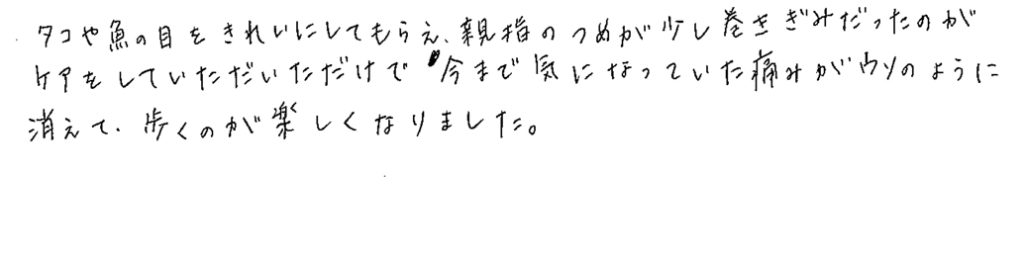 タコや魚の目をきれいにしてもらえ、親指のつめが少し巻きぎみだったのが
ケアをしていただいただけで 今まで気になっていた痛みがウソのように
消えて、歩くのが楽しくなりました。